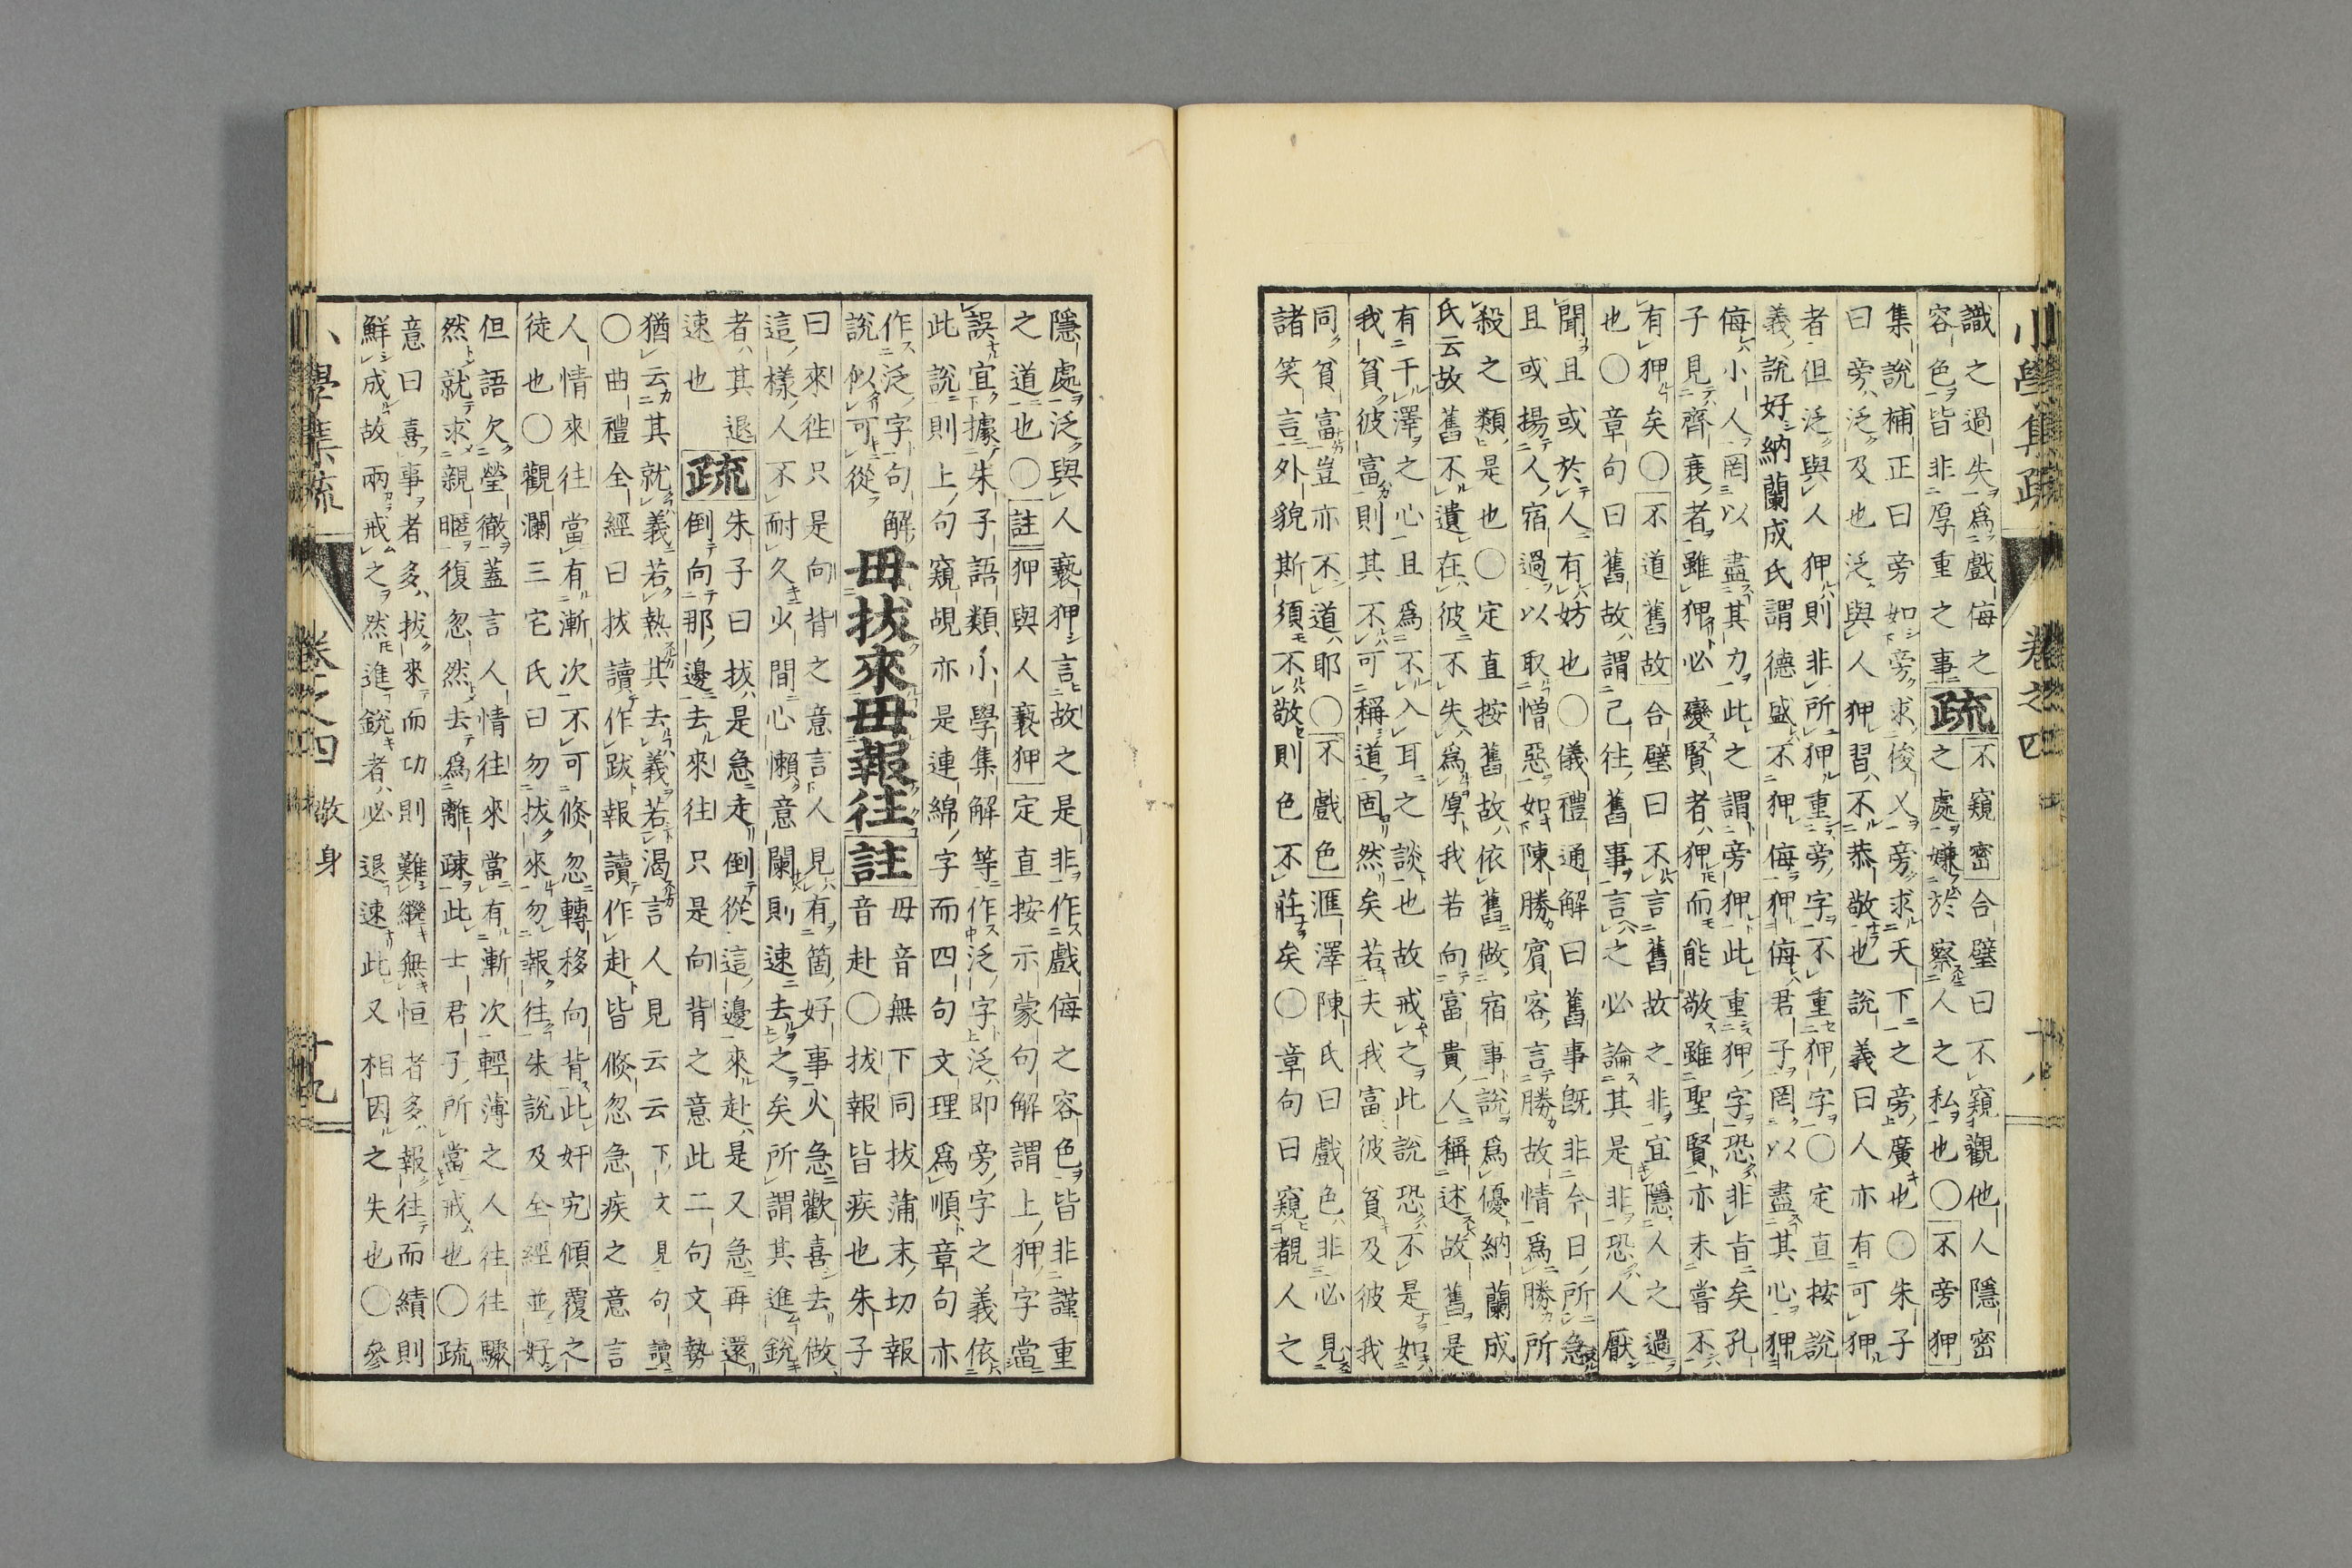 小學集疏 卷之四 十八
識之過失爲戲侮之
容色皆非厚重之事疏不窺密合璧曰不窺觀他人隱密
之處嫌於察人之私也〇不旁狎
集說補正曰旁如旁求俊乂旁求天下之旁廣也〇朱子
曰旁泛及也泛與人狎習不恭敬也說義曰人亦有可狎
者但泛與人狎則非所狎重旁字不重狎字〇定直按說
義說好納蘭成氏謂德盛不狎侮狎侮君子罔以盡其心狎
侮小人罔以盡其力此之謂旁狎此重狎字恐非旨矣孔
子見齊衰者雖狎必變賢者狎而能敬雖聖賢亦未嘗不
有狎矣〇不道舊故合璧曰不言舊故之非宜隱人之過
也〇章句曰舊故謂己往舊事言之必論其是非恐人厭
聞且或於人有妨也〇儀禮通解曰舊事旣非今日所急
且或揚人宿過以取憎惡如陳勝賓客言勝故情爲勝所
殺之類是也〇定直按舊故依舊做宿事說爲優納蘭成
氏云故舊不遺在彼不失爲厚我若向富貴人稱述故舊是
有干澤之心且爲不入耳之談也故戒之此說恐不是如
我貧彼富則其不可稱道固然矣若夫我富彼貧及彼我
同貧富豈亦不道耶〇不戲色滙澤陳氏曰戲色非必見
諸笑言外貌斯須不敬則色不莊矣〇章句曰窺覩人之
隱處泛與人褻狎言故之是非作戲侮之容色皆非謹重
之道也〇註狎與人褻狎定直按示蒙句解謂上狎字當
誤宜據朱子語類小學集解等作泛字泛即旁字之義依
此說則上句窺覘亦是連綿字而四句文理爲順章句亦
作泛字句解
說似可從毋拔來毋報往註毋音無下同拔蒲末切報
音赴〇拔報皆疾也朱子
曰來往只是向背之意言人見有箇好事火急歡喜去做
這樣人不耐久少間心懶意闌則速去之矣所謂其進銳
者其退
速也疏朱子曰拔是急走倒從這邊來赴是又急再還
倒向那邊去來往只是向背之意此二句文勢
猶云其就義若熱其去義若渴言人見云云下文見句讀
〇曲禮全經曰拔讀作跋報讀作赴皆倐忽急疾之意言
人情來往當有漸次不可倐忽轉移向背此奸宄傾覆之
徒也〇觀瀾三宅氏曰勿拔來勿報往朱說及全經並好
但語欠瑩徹蓋言人情往來當有漸次輕薄之人往往驟
然就求親暱復忽然去爲離疎此士君子所當戒也〇疏
意曰喜事者多拔來而功則難繼無恒者多報往而績則
鮮成故兩戒之然進銳者必退速此又相因之失也〇參
小學集疏 卷之四 敬身 十九